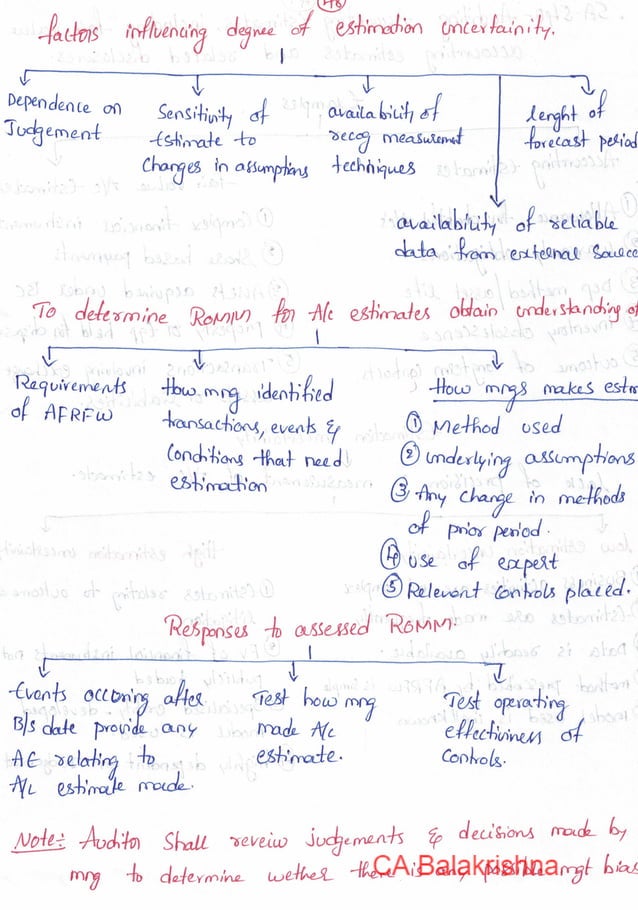 factors influencing degree of estimation uncertainity.
Dependence on
Judgement
Sensitivity of
Estimate to
Changes in assumptions
availability of
recog measuremet
techniques
lenght of
forecast period
availability of reliable
data from external Source
To determine ROMM for A/c estimates obtain understanding of
Requirements
of AFRFW
How mng identified
transactions, events &
Conditions that need
estimation
How mrgs makes estm
① Method used
② underlying assumptions
③ Any change in methods
of prior period.
④ Use of expert
⑤ Relevant controls placed.
Responses to assessed ROMM.
Events occoring after
B/s date provide any
AE relating to
A/c estimate made.
Test how mng
made A/c
estimate.
Test operating
effectiviness of
Controls.
Note:- Auditor Shall reveiw judgements & decisions made by
mng to determine wether there is any possible mgt bias
CA Balakrishna